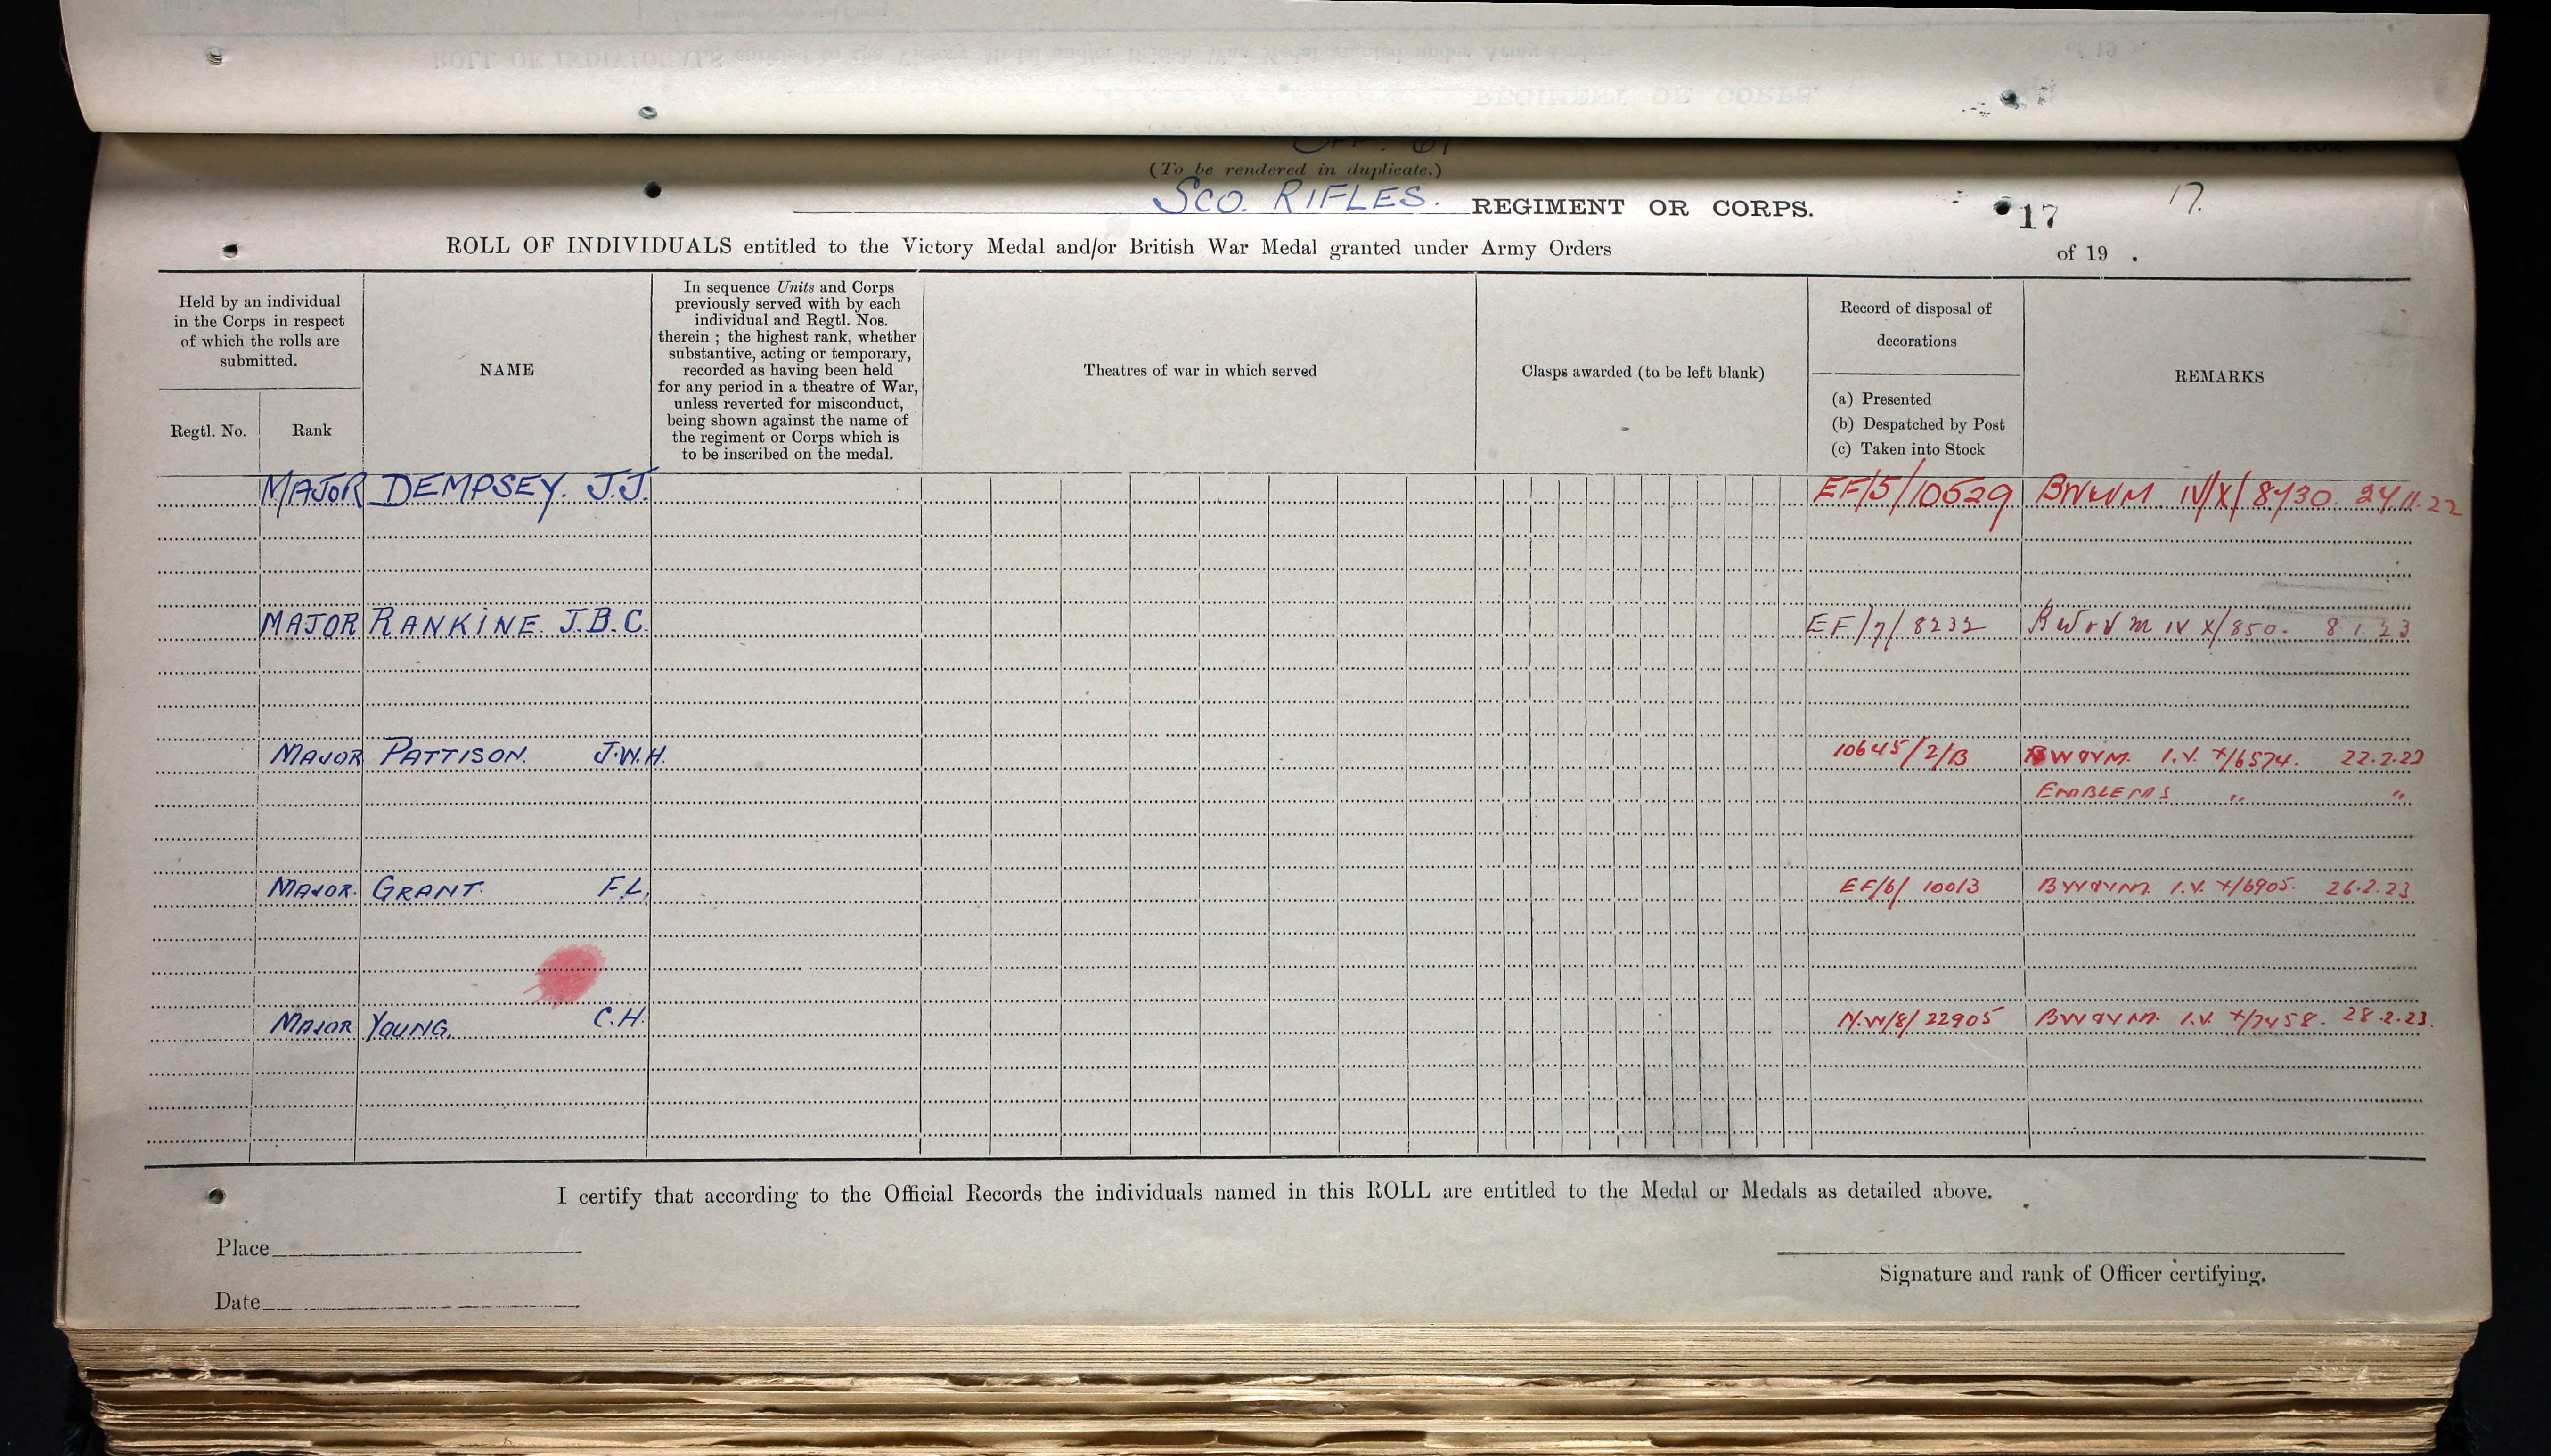 (To be rendered in duplicate.)
SCO. RIFLES. REGIMENT OR CORPS. 17 17.
ROLL OF INDIVIDUALS entitled to the Victory Medal and/or British War Medal granted under Army Orders of 19 .
Held by an individual
in the Corps in respect
of which the rolls are
submitted.
Regtl. No.
Rank
NAME
In sequence Units and Corps
previously served with by each
individual and Regtl. Nos.
therein ; the highest rank, whether
substantive, acting or temporary,
recorded as having been held
for any period in a theatre of War,
unless reverted for misconduct,
being shown against the name of
the regiment or Corps which is
to be inscribed on the medal.
Theatres of war in which served
Clasps awarded (to be left blank)
Record of disposal of
decorations
(a) Presented
(b) Despatched by Post
(c) Taken into Stock
REMARKS
MAJOR DEMPSEY. J.J. EF/5/10529 IV/X/8730. 27.11.22
MAJOR RANKINE. J.B.C. EF/7/8232 BW+VM IV X/850. 8.1.23
MAJOR PATTISON. J.W.H. 10645/2/B BW&VM. I.V. X/6574. 22.2.23
EMBLEMS " "
MAJOR. GRANT. F.L. EF/6/ 10013 BW&VM I.V. X/6905. 26.2.23
MAJOR YOUNG. C.H. N.W/8/ 22905 BW&VM. I.V. X/7458. 28.2.23.
I certify that according to the Official Records the individuals named in this ROLL are entitled to the Medal or Medals as detailed above.
Place
Signature and rank of Officer certifying.
Date